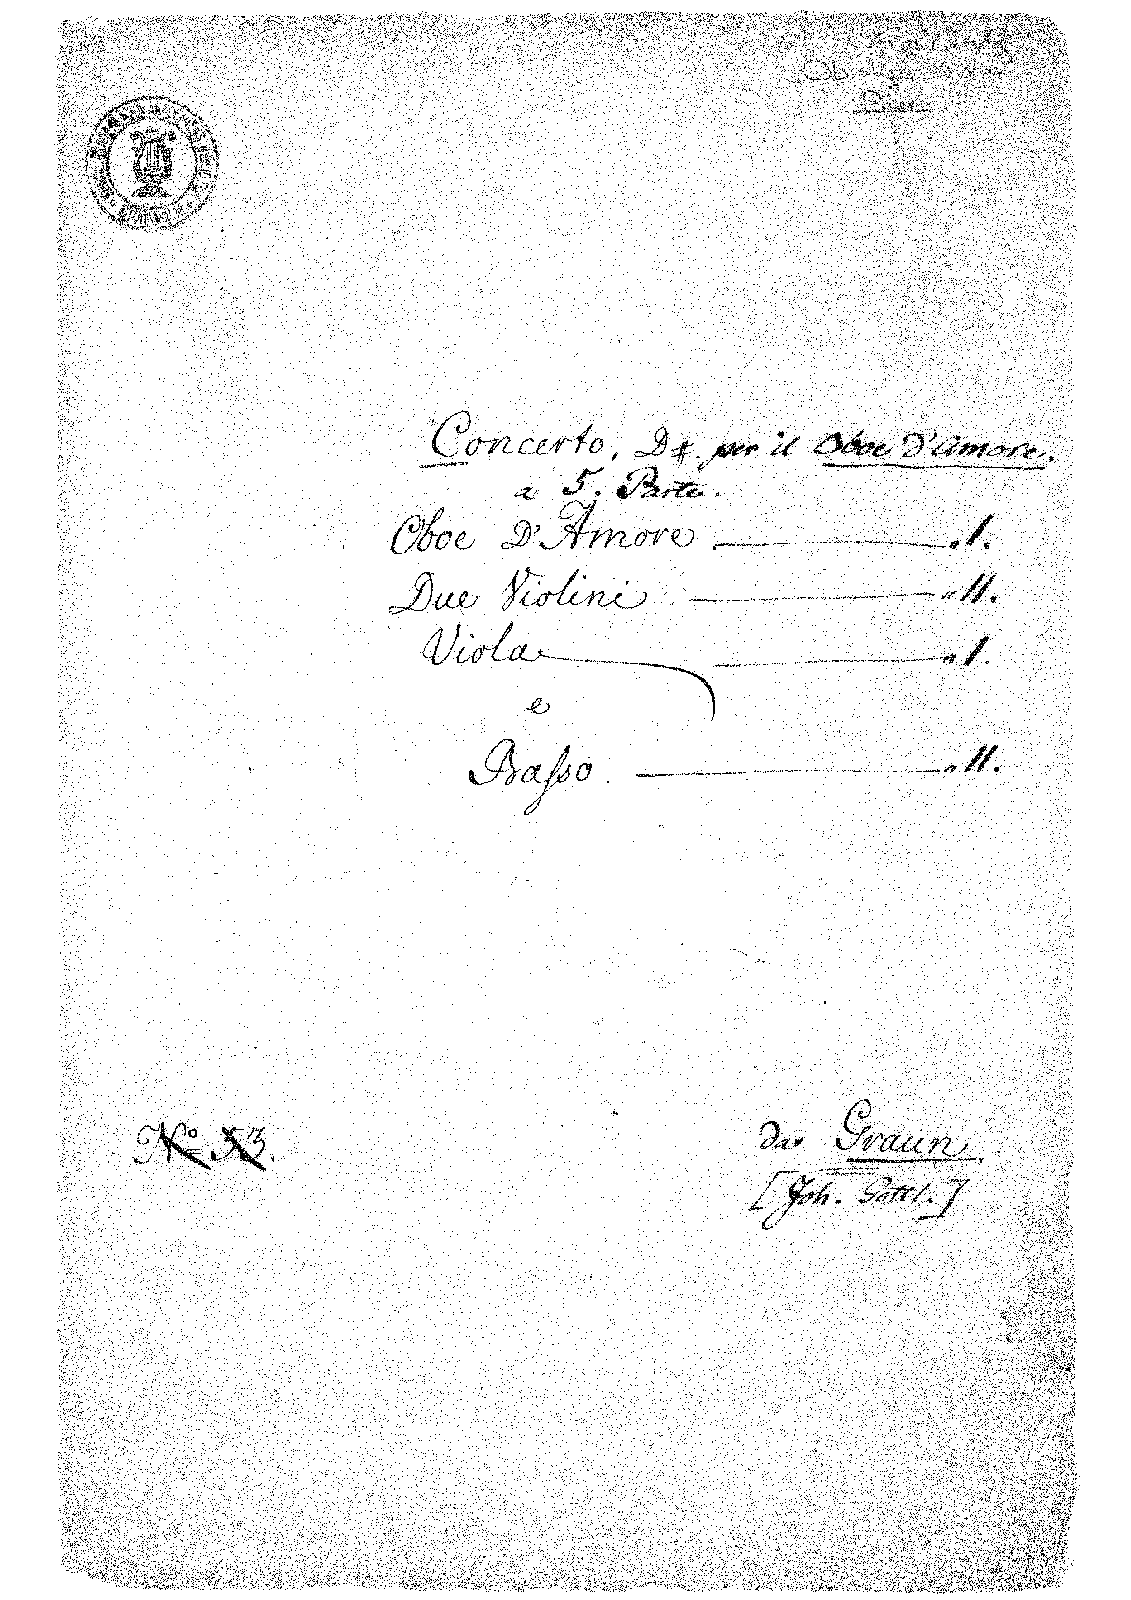 Concerto, D♯. per il Oboe d'Amore.
a 5. Parte.
Oboe D'Amore — „ 1.
Due Violini — „ 11.
Viola — „ 1.
e
Baſso. — „ 11.
No 53.
das Graun.
[Joh. Gottl.]